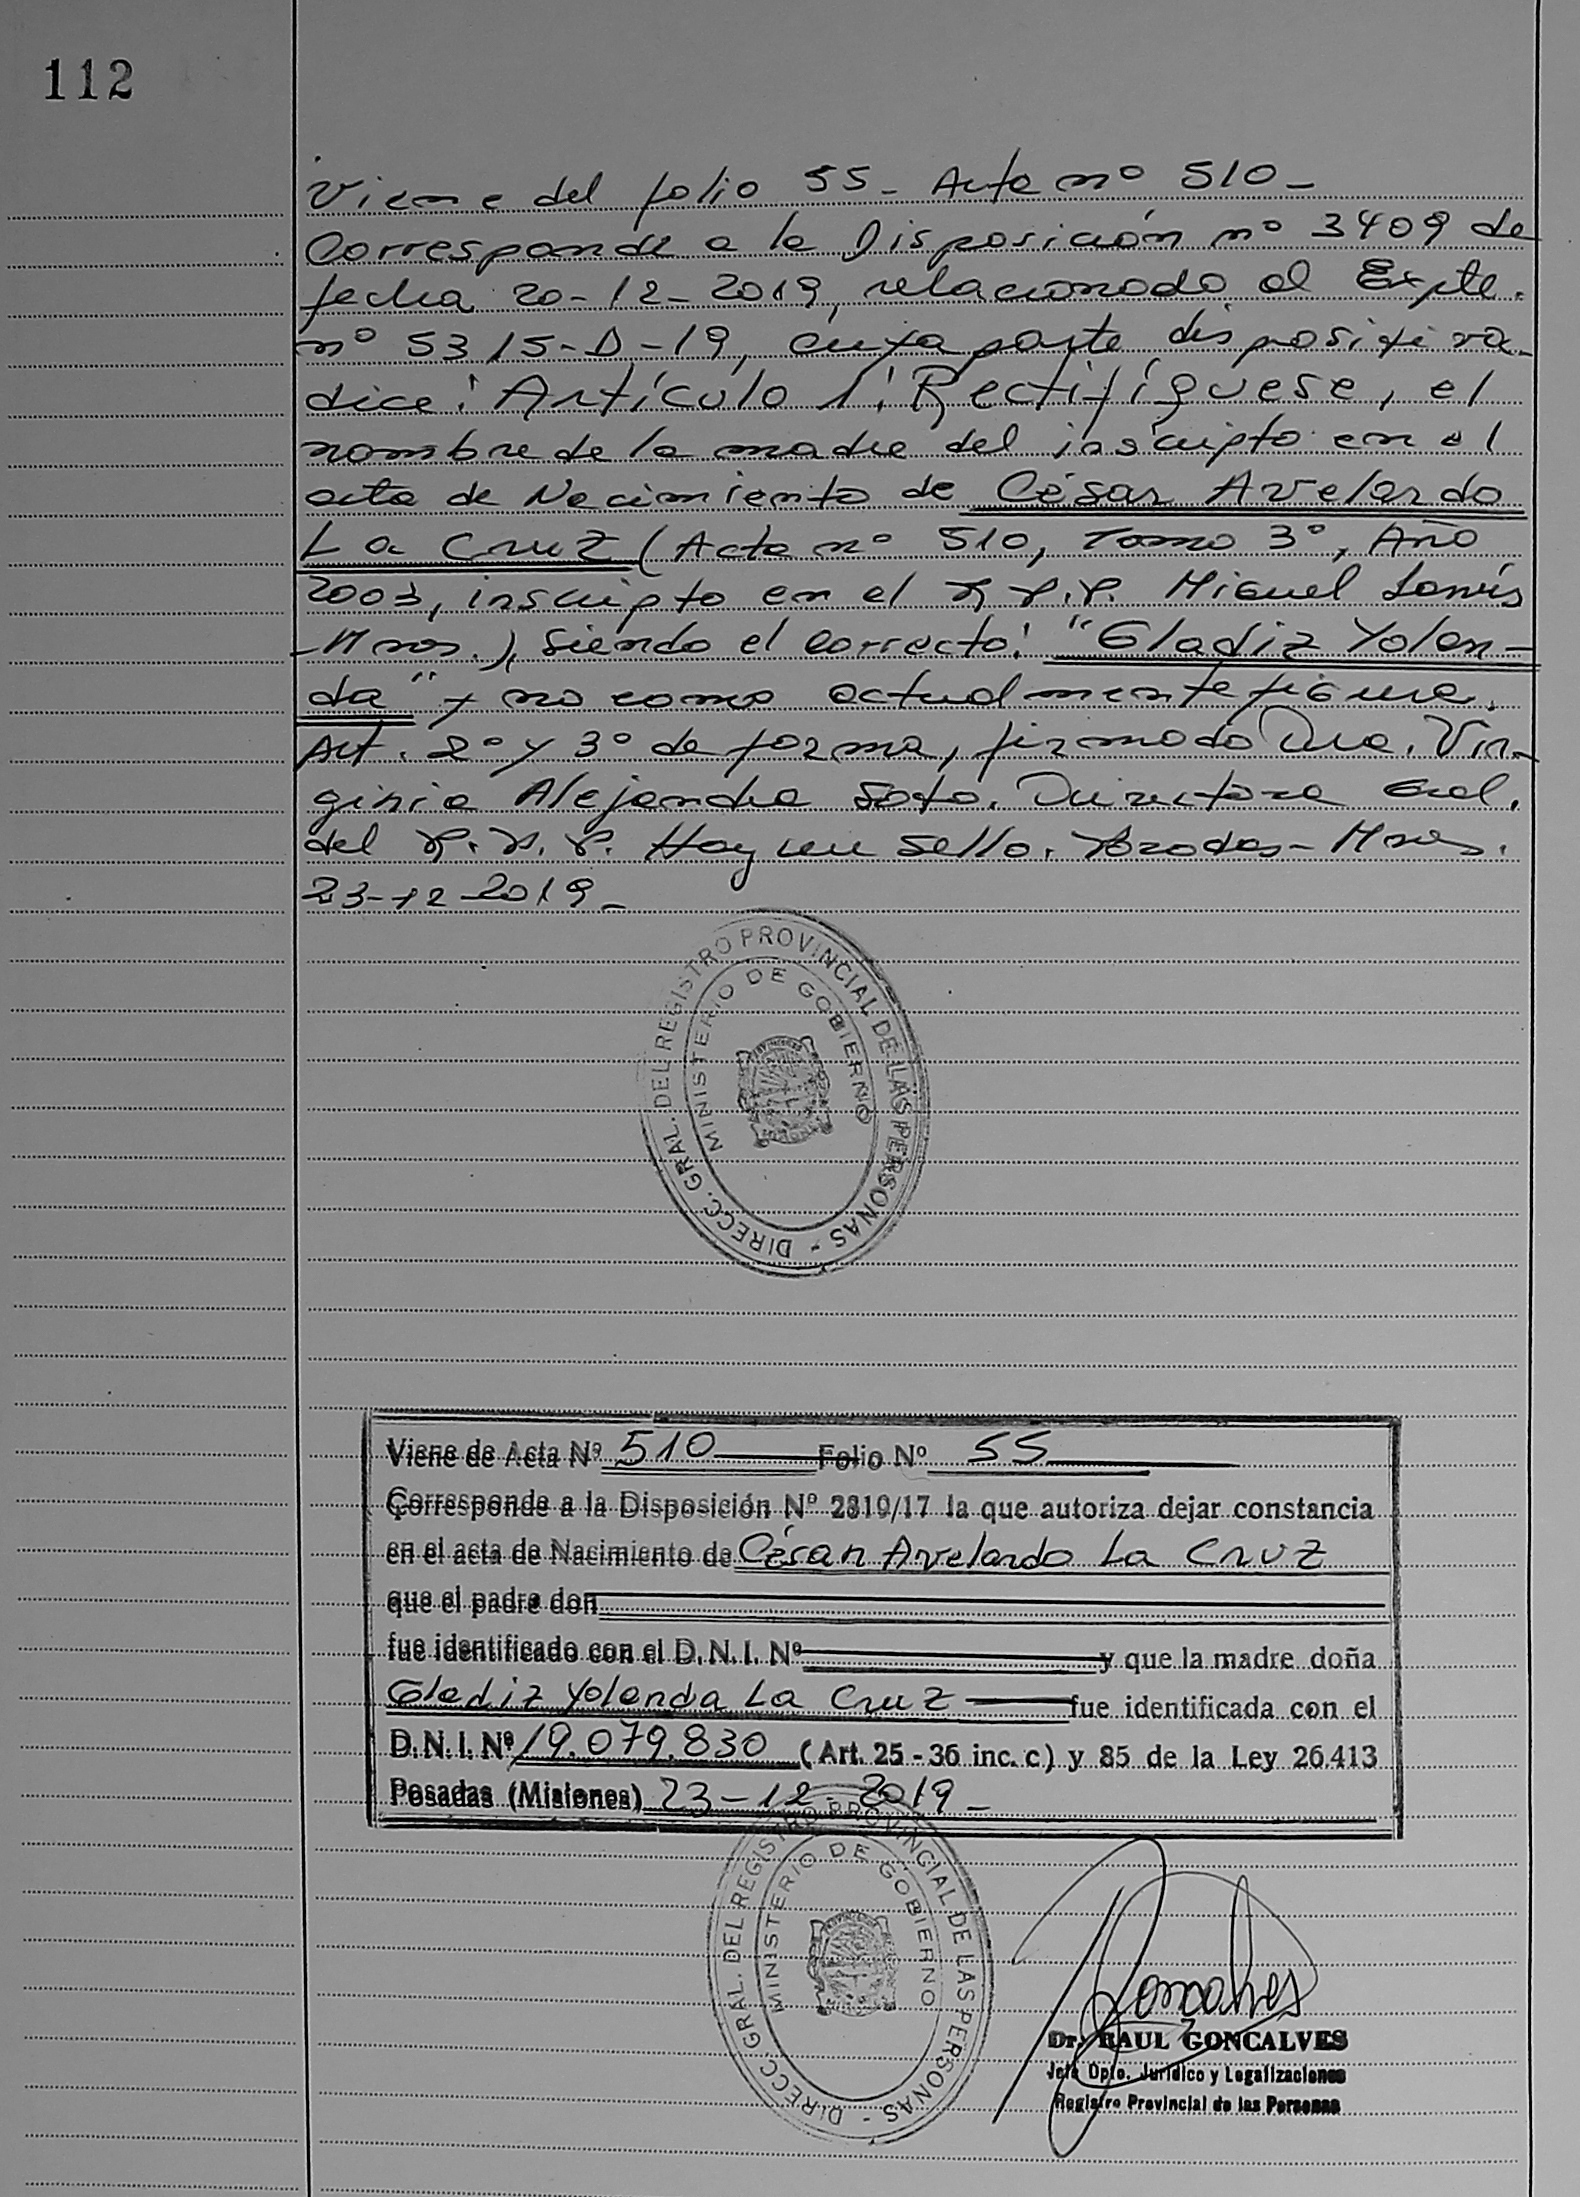 112
Viene del folio 55 - Acta nº 510 -
Corresponde a la Disposición nº 3409 de
fecha 20-12-2019, relacionado al Expte.
nº 5315-D-19, cuya parte dispositiva
dice: Artículo 1: Rectifíquese, el
nombre de la madre del inscripto en el
acta de Nacimiento de César Avelardo
La Cruz (Acta nº 510, Tomo 3º, Año
2003, inscripto en el R.P.P. Miguel Lanús
-Mnes.), siendo el correcto: "Gladiz Yolan-
da" y no como actualmente figura.
Art. 2º y 3º de forma, firmado Dra. Vir-
ginia Alejandra Soto. Directora Gral.
del R.P.P. Hay un sello. Posadas - Mnes.
23-12-2019 -
DIRECC. GRAL. DEL REGISTRO PROVINCIAL DE LAS PERSONAS -
MINISTERIO DE GOBIERNO
Viene de Acta Nº 510 Folio Nº 55
Corresponde a la Disposición Nº 2819/17 la que autoriza dejar constancia
en el acta de Nacimiento de César Avelardo La Cruz
que el padre don
fue identificado con el D.N.I. Nº y que la madre doña
Gladiz Yolanda La Cruz fue identificada con el
D.N.I. Nº 19.079.830 (Art. 25 - 36 inc. c) y 85 de la Ley 26.413
Posadas (Misiones) 23-12-2019 -
DIRECC. GRAL. DEL REGISTRO PROVINCIAL DE LAS PERSONAS -
MINISTERIO DE GOBIERNO
Goncalves
Dr. RAUL GONCALVES
Jefe Dpto. Jurídico y Legalizaciones
Registro Provincial de las Personas